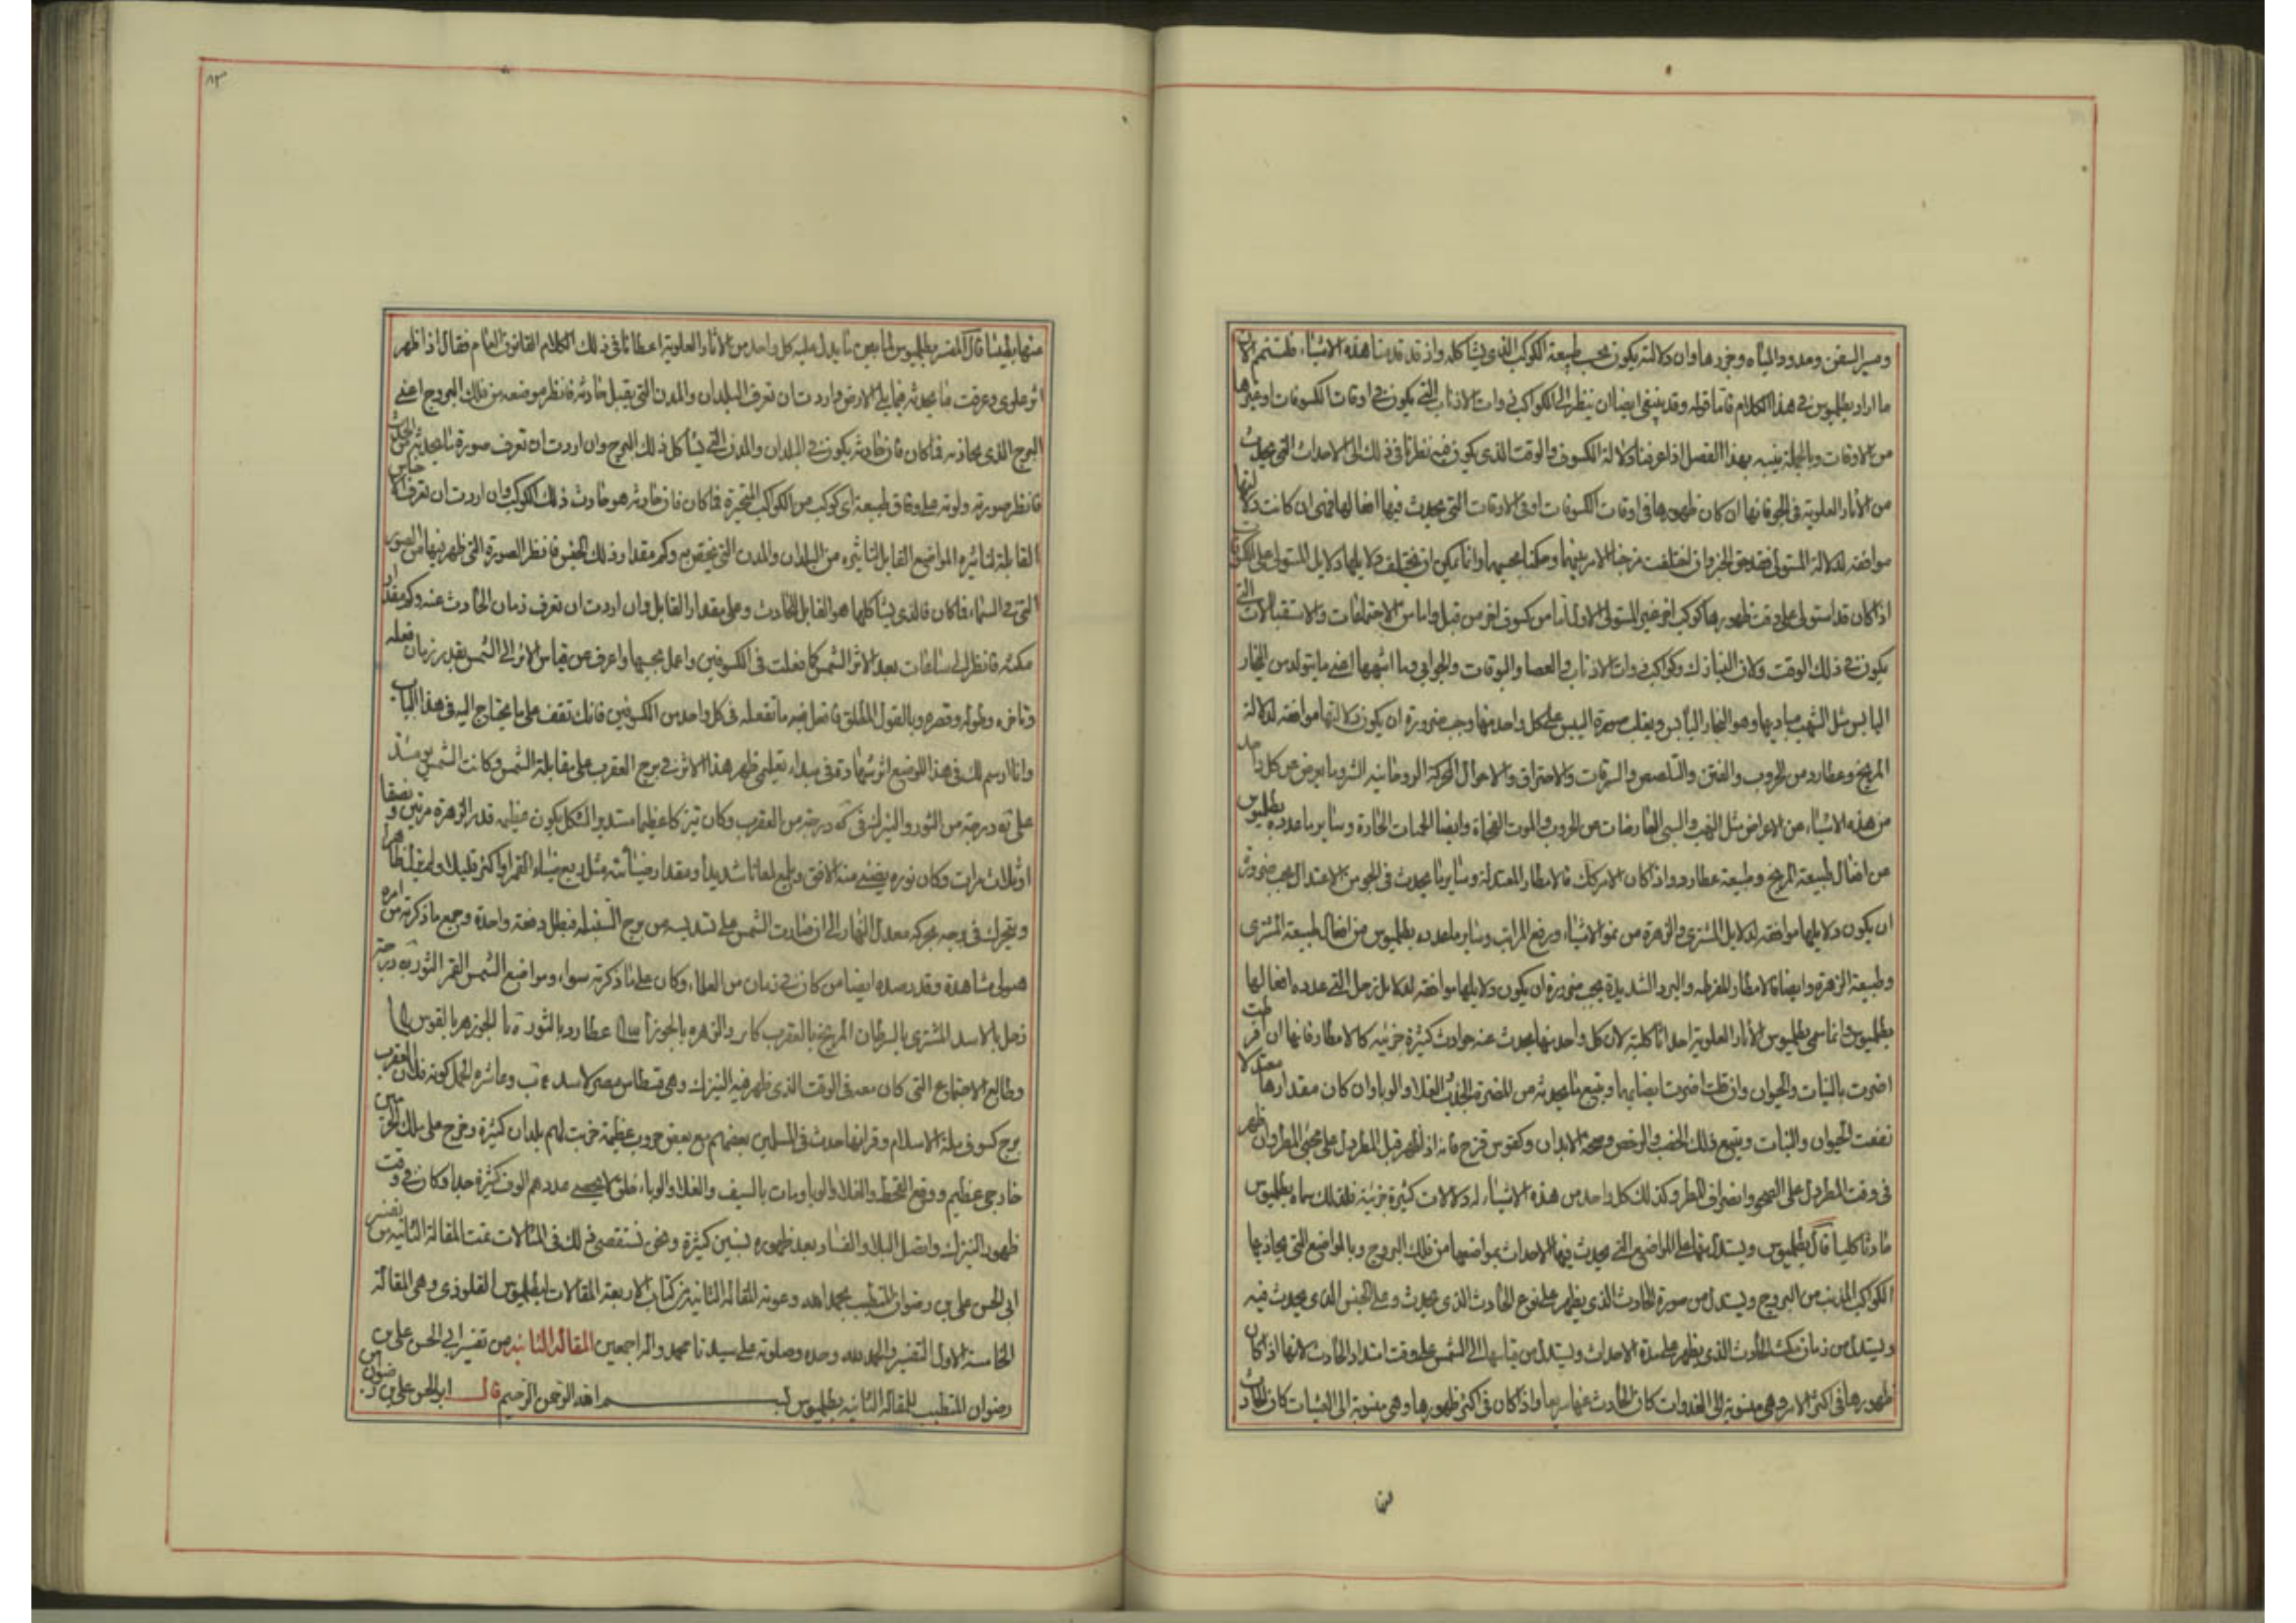 ومسير السفن ومدود المياه وجزرها وان دلالته يكون بحسب طبيعة الكوكب الذى يشاكله واذ قد قدمنا هذه الاشياء فلنتمم الان
ما اراد بطلميوس فى هذا الكلام فاما قوله وقد ينبغى ايضا ان ينظر الى الكواكب ذوات الاذناب التى يكون فى اوقات الكسوفات او غيرها
من الاوقات وبالجملة ينبه بهذا الفصل اذا عرفنا دلالة الكسوف والوقت الذى يكون فيه نظرنا فى ذلك الى الاحداث التى يحدث
من الاثار العلوية فى الجو فانها ان كان ظهورها فى اوقات الكسوفات او فى الاوقات التى يحدث فيها افعالها فهى ان كانت دلالتها
موافقة لدلالة المستولى فقد حق الخبر وان اختلفت مزجنا الامر بينهما وحكمنا بحسبهما وانما يمكن ان يختلف دلايلها ودلايل المستولى على الكسوفات
اذا كان قد استولى على وقت ظهورها كوكب اخر غير المستولى الاول اما من كسوف اخر من قبل واما من الاجتماعات والاستقبالات التى
يكون فى ذلك الوقت ولان النيازك وكواكب ذوات الاذناب والعصا والبوقات والجوابى وما اشبهها اعنى ما يتولد من البخار
اليابس مثل الشهب مباديها وهو البخار اليابس ويغلب صورة اليبس على كل واحد منها وجب ضرورة ان يكون دلالتها موافقة لدلالة
المريخ وعطارد من الحروب والفتن والتلصص والسرقات والاحتراق والاحوال المحركة الردية وما يعرض عن كل واحد
من هذه الاشياء من الاعراض مثل النهب والسبى الغارضات عن الحروب والموت الفجاة وايضا الحميات الحادة وساير ما عدده بطلميوس
من افعال طبيعة المريخ وطبيعة عطارد واذا كان الامر كك فالامطار المعتدلة وساير ما يحدث فى الجو من الاعتدال يجب ضرورة
ان يكون دلايلها موافقة لدلايل المشترى والزهرة من نمو الاشياء ورفع المراتب وساير ما عدده بطلميوس من افعال طبيعة المشترى
وطبيعة الزهرة وايضا فالامطار المفرطة والبرد الشديدة يجب ضرورة ان يكون دلايلها موافقة لدلايل زحل التى عدده افعالها
بطلميوس وانما سمى بطلميوس الاثار العلوية احداثا كلية لان كل واحد منها يحدث عنه حوادث كثيرة جزئية كالامطار فانها ان افرطت
اضرت بالنبات والحيوان وان قلت اضرت ايضا بهما ويتبع ما يحدثه من المضرة الجدب الغلا والوبا وان كان مقدارها معتدلا
نفعت الحيوان والنبات ويتبع ذلك الخصب والرخص وصحة الابدان وكقوس قزح فانه اذا ظهر قبل المطر دل على مجئ المطر وان ظهر
فى وقت المطر دل على الصحو وانصراف المطر وكذلك كل واحد من هذه الاشياء له دلالات كثيرة جزئية فلذلك سماه بطلميوس
حادثا كليا قال بطلميوس ويستدل بها على المواضع التى يحدث فيها الاحداث بمواضعها من فلك البروج وبالمواضع التى يحاذيها
الكواكب المذنب من البروج ويستدل من صورة الحادث الذى يظهر على نوع الحادث الذى يحدث وعلى الجنس الذى يحدث فيه
ويستدل من زمان مكث الحادث الذى يظهر على مدة الاحداث ويستدل من قياسها الى الشمس على وقت ابتداء الحادث لانها اذا كان
ظهورها فى اكثر الامر وهى منسوبة الى الغدوات كان الحادث عنها سريعا واذا كان فى اكثر ظهورها وهى منسوبة الى العشيات كان الحادث
منها بطيئا قال المفسر بطلميوس لما بين ما يدل عليه كل واحد من الاثار العلوية اعطانا فى ذلك الكلام القانون العام فقال اذا ظهر
اثر علوى وعرفت ما يحدثه فيما يلى الارض واردت ان تعرف البلدان والمدن التى يقبل حادثه فانظر موضعه من فلك البروج اعنى
البرج الذى يحاذيه فما كان فان حادثه يكون فى البلدان والمدن التى يشاكل ذلك البرج وان اردت ان تعرف صورة ما يحدثه من الحدث
فانظر صورته ولونه على وفاق طبيعة اى كوكب من الكواكب المتحيرة فما كان فان حادثه هو حادث ذلك الكوكب وان اردت ان تعرف الاجناس
القابلة لتاثيره المواضع القابل لتاثيره من البلدان والمدن التى يختص به وكم مقدار ذلك الجنس فانظر الصورة التى ظهر فيها من الصور
التى فى السماء فما كان فالذى يشاكلها هو القابل للحادث وعلى مقدار القابل وان اردت ان تعرف زمان الحادث عنه وكم مقدار
مكثه فانظر الى ساعات بعد الاثر الشمس كما فعلت فى الكسوفين واعمل بحسبها واعرف من قياس الاثر الى الشمس تقدر زمان فعله
وتاخره وطوله وقصره وبالقول المطلق فافعل فيه ما تفعله فى كل واحد من الكسوفين فانك تقف على ما يحتاج اليه فى هذا الباب
وانا ارسم لك فى هذا الموضع اثر شهادته فى مبداء تعلمى ظهر هذا الاثر فى برج العقرب على مقابلة الشمس وكانت الشمس يومئذ
على يه درجة من الثور والنيزك فى كه درجة من العقرب وكان نيزكا عظيما مستدير الشكل يكون عظمه قدر الزهرة مرتين ونصفا
او ثلاث مرات وكان نوره يضئ منه الافق ويلمع لمعانا شديدا ومقدار ضيائه مثل ربع ضياء القمر او اكثر قليلا ولم يزل ظاهرا
ويتحرك فى برجه بحركة معدل النهار الى ان صارت الشمس على تسديسه من برج السنبلة فبطل دفعة واحدة وجميع ما ذكرته من امره
هو لى مشاهدة وقد رصده ايضا من كان فى زمان من العلماء وكان على ما ذكرته سواء ومواضع الشمس القمر الثور يه درجة
زحل بالاسد المشترى بالسرطان المريخ بالعقرب والزهره بالجوزا عطارد بالثور الجوزهر بالقوس
وطالع الاجتماع التى كان معه فى الوقت الذى ظهر فيه النيزك وهى فسطاس مصر الاسد وعاشره الحمل كونه فلان العقرب
برج كسوف ملة الاسلام وقرانها حدث فى المسلمين بعضهم مع بعض حروب عظيمة خربت لهم بلدان كثيرة وخرج على ملك الحرمين
خارجى عظيم ووقع القحط والغلا والوبا ومات بالسيف والغلا والوباء خلق لا يحصى عددهم الوف كثيرة جدا وكان فى وقت
ظهور النيزك واتصل البلا والفساد بعد ظهوره بسنين كثيرة ونحن نستقصى ذلك فى المثالات تمت المقالة الثانية من تفسير
ابى الحسن على بن رضوان المتطبب بحمد الله وعونه المقالة الثانية من كتاب الاربعة المقالات لبطلميوس القلوذى وهى المقالة
الخامسة الاول التفسير والحمد لله وحده وصلوته على سيدنا محمد واله اجمعين المقالة الثانية من تفسير ابى الحسن على بن
رضوان المتطبب للمقالة الثانية بطلميوس بسم الله الرحمن الرحيم قال ابو الحسن على بن رضوان